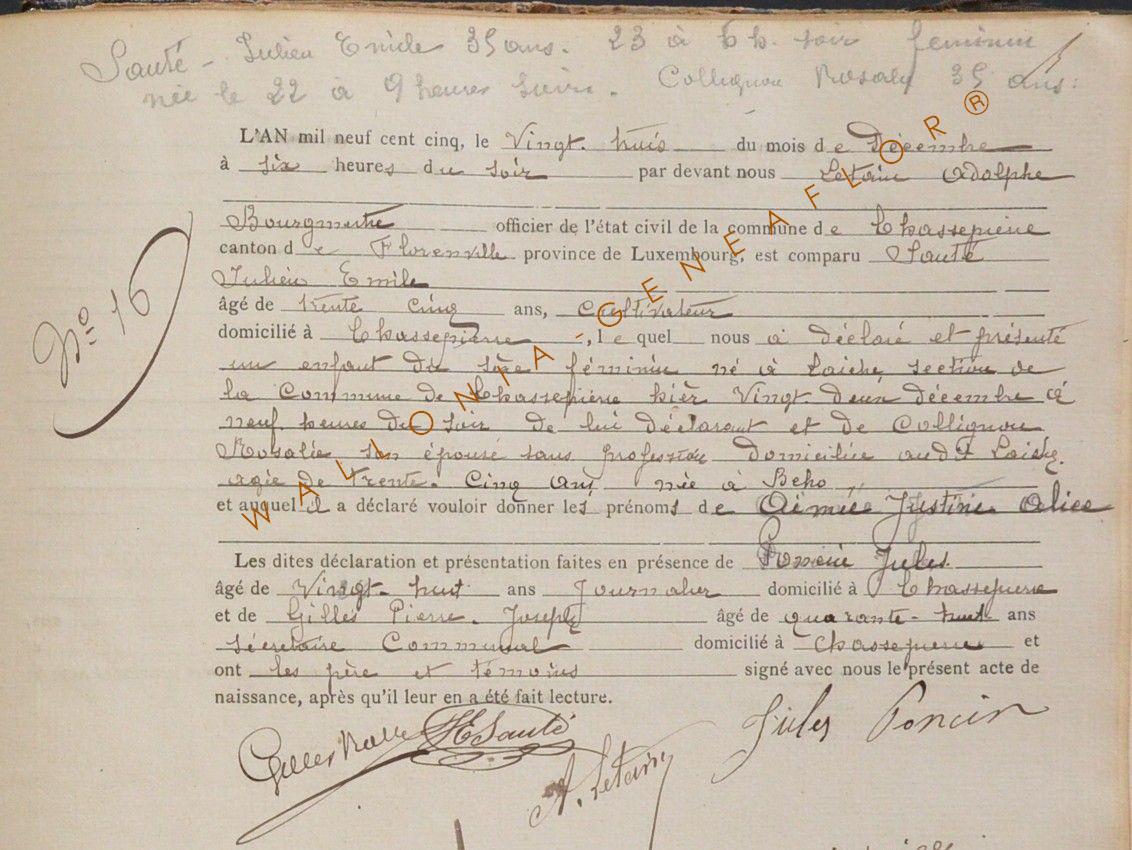 Santé - Julien Emile 35 ans. 23 à 6 h. soir féminin
née le 22 à 9 heures soir. Collignon Rosalie 35 ans.
L'AN mil neuf cent cinq, le Vingt trois du mois de Décembre
à six heures du soir par devant nous Letain Adolphe
Bourgmestre officier de l'état civil de la commune de Chassepierre
canton de Florenville province de Luxembourg, est comparu Santé
Julien Emile
N° 16
âgé de trente cinq ans, Cultivateur
domicilié à Chassepierre, lequel nous a déclaré et présenté
un enfant du sexe féminin né à Laiche, section de
la Commune de Chassepierre hier Vingt deux décembre à
neuf heures du soir de lui déclarant et de Collignon
Rosalie son épouse sans profession domiciliée audit Laiche,
agée de trente-Cinq ans, née à Beho,
et auquel il a déclaré vouloir donner les prénoms de Aimée Justine Alice
Les dites déclaration et présentation faites en présence de Poncin Jules
âgé de Vingt-huit ans Journalier domicilié à Chassepierre
et de Gilles Pierre-Joseph âgé de quarante-huit ans
secrétaire Communal domicilié à Chassepierre et
ont les père et témoins signé avec nous le présent acte de
naissance, après qu'il leur en a été fait lecture.
Gilles JESanté Jules Poncin
A. Letain
WALLONIA-GENEAFLOR®